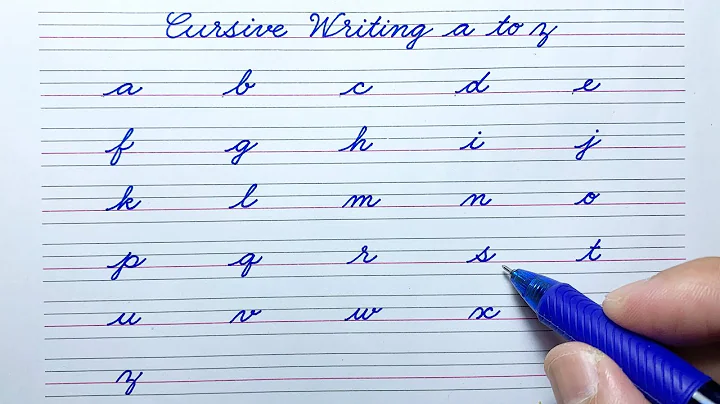 Cursive Writing a to z
a b c d e
f g h i j
k l m n o
p q r s t
u v w x
z